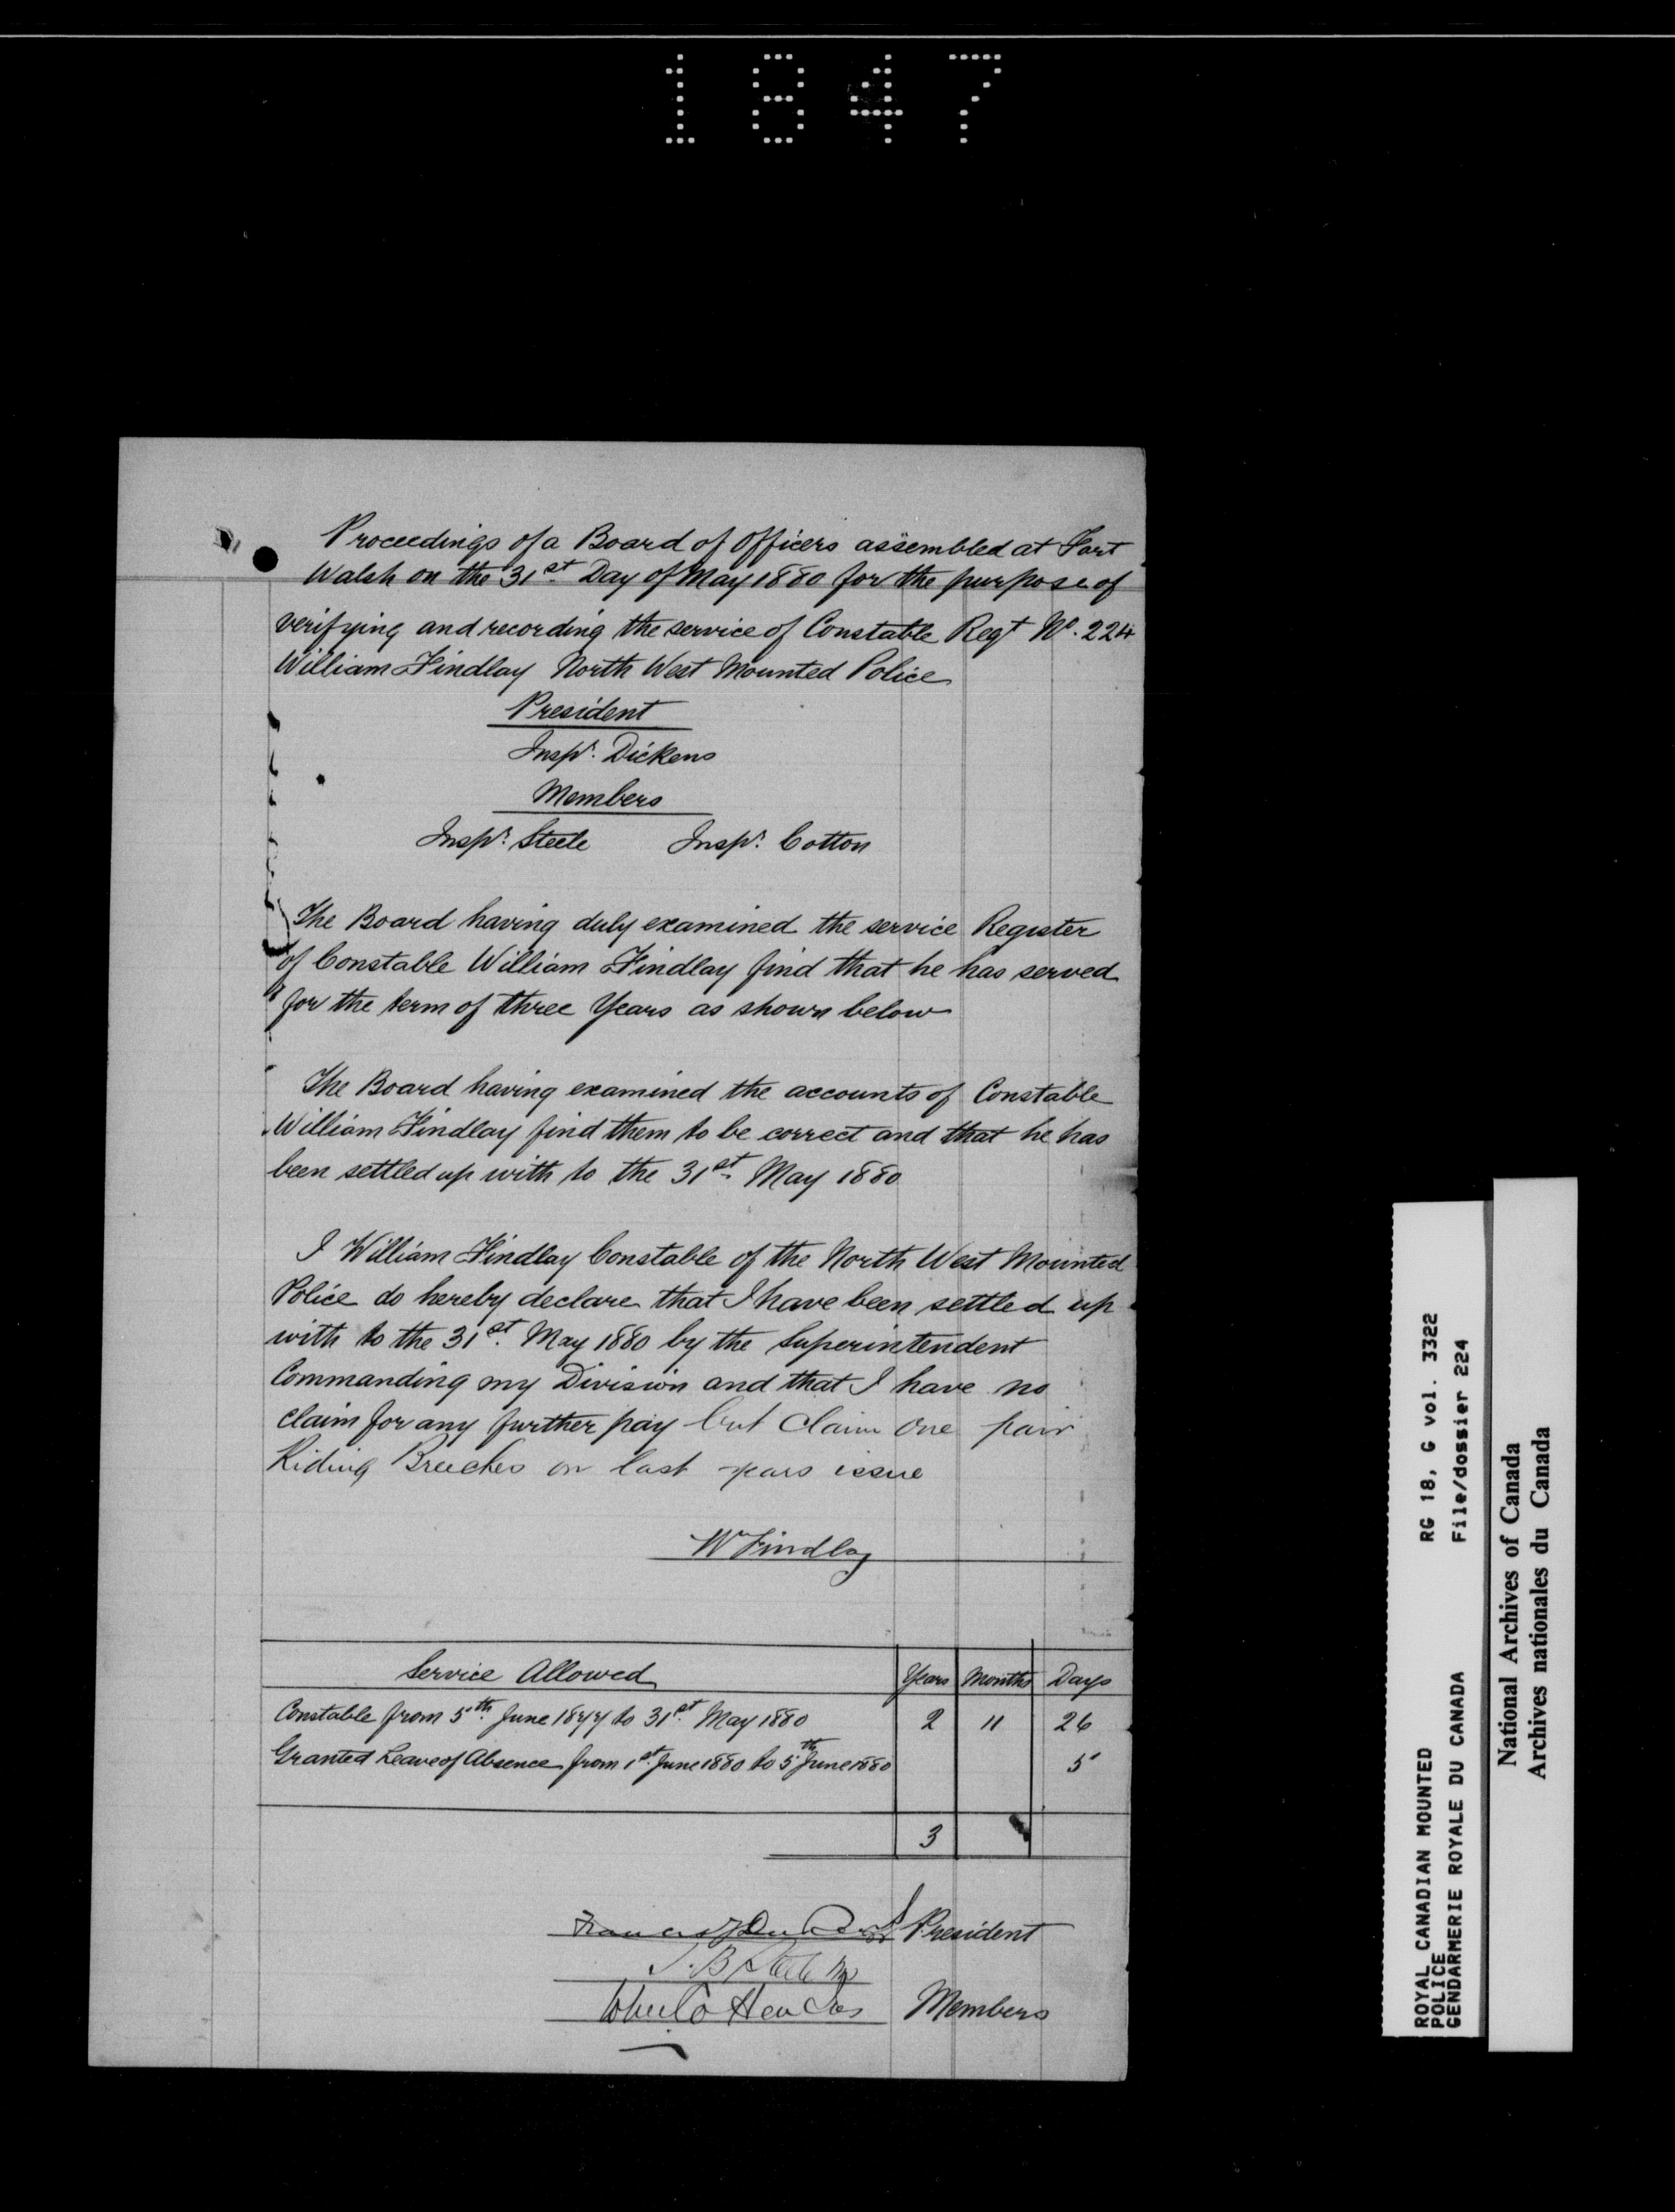 1847
Proceedings of a Board of Officers assembled at Fort
Walsh on the 31st Day of May 1880 for the purpose of
verifying and recording the service of Constable Regt No. 224
William Findlay North West Mounted Police
President
Inspr. Dickens
Members
Inspr. Steele Inspr. Cotton
The Board having duly examined the service Register
of Constable William Findlay find that he has served
for the term of three Years as shown below
The Board having examined the accounts of Constable
William Findlay find them to be correct and that he has
been settled up with to the 31st May 1880
I William Findlay Constable of the North West Mounted
Police do hereby declare that I have been settled up
with to the 31st. May 1880 by the Superintendent
Commanding my Division and that I have no
claim for any further pay but claim one pair
Riding Breeches on last years issue
Wm Findlay
Service Allowed Years Months Days
Constable from 5th June 1877 to 31st May 1880 2 11 26
Granted Leave of Absence from 1st June 1880 to 5th June 1880 5
3
Francis J Dickens President
S. B Steele
Members
ROYAL CANADIAN MOUNTED RG 18, G vol. 3322
POLICE
GENDARMERIE ROYALE DU CANADA File/dossier 224
National Archives of Canada
Archives nationales du Canada